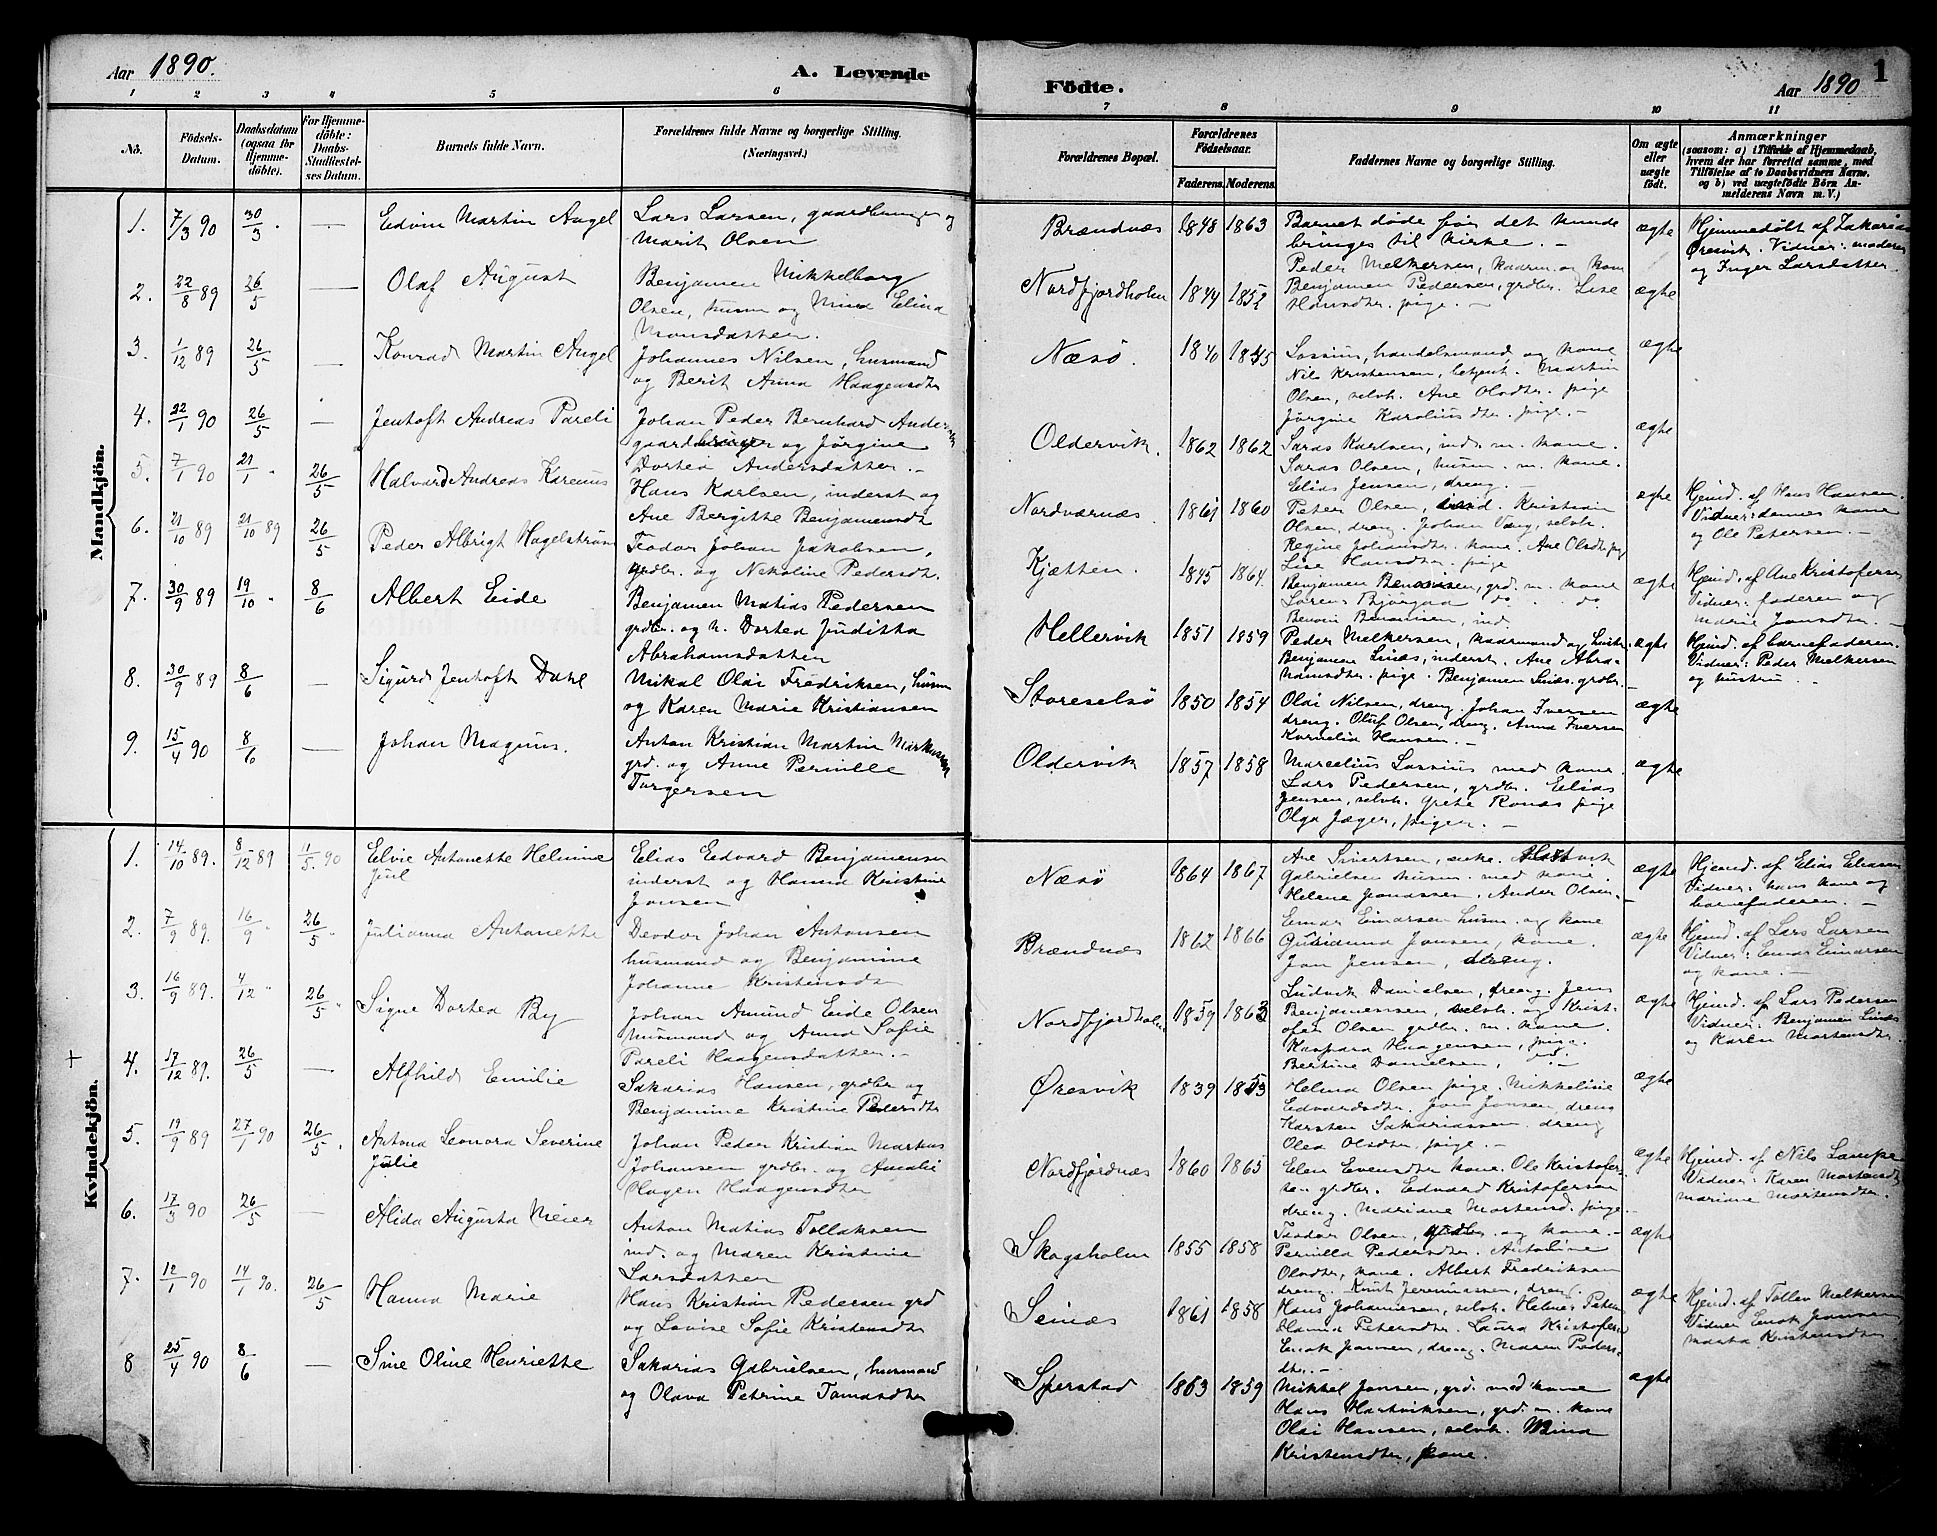 Aar 1890.
A. Levende
Födte.
Aar 1890
1
1 2 3 4 5 6
7 8 9 10 11
No.
Födsels-
Datum.
Daabsdatum
(ogsaa for
Hjemme-
döbte).
For Hjemme-
döbte:
Daabs-
Stadfæstel-
ses Datum.
Barnets fulde Navn.
Forældrenes fulde Navne og borgerlige Stilling.
(Næringsvei.)
Forældrenes Bopæl.
Forældrenes
Födselsaar.
Faderens.
Moderens.
Faddernes Navne og borgerlige Stilling.
Om ægte
eller
uægte
födt.
Anmærkninger
(saasom: a) i Tilfælde af Hjemmedaab,
hvem der har forrettet samme, med
Tilföielse af to Daabsvidners Navne,
og b) ved uægtefödte Börn An-
melderens Navn m. V.)
Mandkjön.
1. 7/3 90 30/3 — Edvin Martin Angel
Lars Larsen, gaardbruger og
Marit Olsen
Brændnæs 1848 1863
Barnet döde för det kunde
bringes til kirke. —
ægte
Hjemmedöbt af Zakarias
Öresvik. Vidner: moderen
og Inger Larsdatter
2. 22/8 89 26/5 — Olaf August
Benjamen Mikkelborg
Olsen, husm og Mina Elina
Monsdatter.
Nordfjordholm 1844 1851
Peder Melkersen, kaarm. og kone
Benjamen Pedersen, grdbr. Lise
Hansdtr. pige. —
ægte
3. 1/12 89 26/5 — Konrad Martin Angel
Johannes Nilsen, husmand
og Berit Anna Haagensdtr
Næsö. 1840 1845
Lossius, handelsmand og kone
Nils Kristensen, betjent. Martin
Olsen, selvh. Ane Olsdtr. pige
Jörgine Karoliusdtr. pige. —
ægte
4. 22/1 90 26/5 — Jentoft Andreas Pareli
Johan Peder Bernhard Andersen
gaardbruger og Jörgine
Dortea Andersdatter. —
Oldervik. 1862 1862
Saras Karlsen, ind. m. kone.
Saras Olsen, husm. m. kone.
Elias Jensen, dreng. —
ægte
5. 7/1 90 21/1 " 26/5 Halvard Andreas Karenus
Hans Karlsen, inderst og
Ane Bergitte Benjamensdt
Nordværnæs. 1861 1860
Peter Olsen, ind. Kristian
Olsen, dreng. Johan Vang, selvh.
Regine Johansdtr. kone. Ane Olsdtr. pig
Lise Hansdtr. pige
ægte
Hjemd. af Hans Hansen.
Vidner: dennes kone
og Ole Petersen. —
6. 21/10 89 21/10 89 26/5 Peder Albrigt Hagelstrøm
Teodor Johan Jakobsen,
grdbr. og Nekoline Pedersdt.
Kjætten. 1845 1864
Benjamen Benonissen, grd. m. kone
Sörens Björgaa do. do
Benoni Benonisen, ind.
ægte
Hjemd. af Ane Kristofersen
Vidner: faderen og
Marie Jonsdtr. —
7. 30/9 89 19/10 " 8/6 Albert Eide
Benjamen Matias Pedersen
grdbr. og h. Dortea Juditha
Abrahamsdatter
Hellervik 1851 1859
Peder Melkersen, kaarmand og hustr.
Benjamen Sinæs, inderst. Ane Abra-
hamsdtr. pige. Benjamen Sinæs. grdbr.
ægte
Hjemd. af barnefaderen
Vidner: Peder Melkersen
og hustru. —
8. 30/9 89 8/6 — Sigurd Jentoft Dahl
Mikal Olai Fredriksen, husm
og Karen Marie Kristiansen
Storeselsö 1850 1854
Olai Nilsen, dreng. Johan Iversen
dreng. Oluf Olsen, dreng. Anna Iversen
Kornelia Hansen. —
ægte
9. 15/4 90 8/6 — Johan Magnus.
Anton Kristian Martin Markussen
grd. og Anne Pernille
Torgersen
Oldervik 1857 1858
Marcelius Lossius med kone.
Lars Pedersen, grdbr. Elias
Jensen, selvh. Grete Ronæs pige
Olga Jæger, piger. —
ægte
Kvindekjön.
1. 14/10 89. 8/12 89 11/5. 90 Elvie Antonette Helmine
Juul
Elias Edvard Benjamensen
inderst og Hanna Kristine
Jonsen
Næsö 1864 1867
Ane Sivertsen, enke. Hartvik
Gabrielsen husm. med kone.
Helene Jonassen. Ander Olsen —
ægte
Hjemd. af Elias Eliasen
Vidner: hans kone og
barnefaderen. —
2. 7/9 89. 16/9 " 26/5 " Julianna Antonette
Deodor Johan Antonsen
husmand og Benjamine
Johanne Kristensdtr
Brændnæs 1862 1866
Einar Einarsen husm. og kone
Gurianna Jonsen, kone.
Jon Jensen, dreng.
ægte
Hjemd. af Lars Larsen
Vidner: Einar Einarsen
og kone. —
3. 16/9 89. 4/12 " 26/5 " Signe Dortea By
Johan Amund Eide Olsen
husmand og Anna Sofie
Pareli Haagensdatter. —
Nordfjordholm 1859 1863
Ludvik Danielsen, dreng. Jens
Benjamensen, selvh. og Krist-
ofer Olsen grdbr. m. kone.
Kaspara Haagensen, pige.
Bertine Danielsen, "
ægte
Hjemd. af Lars Pedersen
Vidner: Benjamen Sinæs
og Karen Mortensdtr.
+ 4. 17/12 89. 26/5 — Alfhild Emilie
Sakarias Hansen, grdbr og
Benjamine Kristine Pedersdtr
Øresvik 1839 1853
Helma Olsen pige. Mikkeline
Edvardsdtr. Jon Jonsen, dreng
Karsten Sakariassen. dreng
Olea Olsdtr, pige. —
ægte
5. 19/9 89 27/1 90 26/5. Antona Leonora Severine
Julie
Johan Peder Kristian Markus
Johansen grdbr. og Amalie
Hagen Haagensdtr
Nordfjördnæs 1860 1865
Elen Evensdtr kone. Ole Kristofer-
sen grdbr. Edvard Kristofersen
dreng. Mariane Mortensd. pige.
ægte
Hjemd. af Nils Lampe
Vidner: Karen Mortensdtr
Mariane Mortensdtr.
6. 17/3 90 26/5 — Alida Augusta Meier
Anton Matias Tollaksen
ind. og Maren Kristine
Larsdatter
Skogsholm 1855 1858
Teodor Olsen, grdbr og kone. —
Pernilla Pedersdtr. Antoline
Olsdtr, kone. Albert Fredriksen
dreng. Knut Jeremiassen, dreng.
ægte
7. 12/1 90 14/1 90. 26/5 Hanna Marie
Hans Kristian Pedersen grd
og Lovise Sofie Kristensdtr
Seinæs 1861 1858
Hans Johannesen, selvh. Helmer Petersen
Hanna Petersdtr. Laura Kristofersen
Enok Jonsen, dreng. Maren Peders-
dtr. —
ægte
Hjemd. af Tollev Melkersen
Vidner Enok Jonsen
Marta Kristensdtr
8 25/4 90 8/6 — Sine Oline Henriette
Sakarias Gabrielsen, husmand
og Olava Petrine Tomasdtr
Sperstad 1863 1859
Mikkel Jonsen, grd. med kone
Hans Hartviksen, grd. m. kone
Olai Hansen, selvh. Mina
Kristensdtr, kone.
ægte